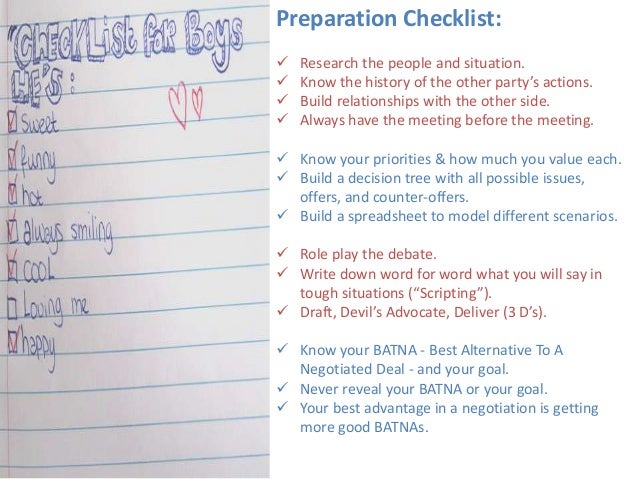 "Checklist for Boys
HE'S :
sweet
funny
hot
always smiling
cool
Loving me
happy
Preparation Checklist:
✓ Research the people and situation.
✓ Know the history of the other party's actions.
✓ Build relationships with the other side.
✓ Always have the meeting before the meeting.
✓ Know your priorities & how much you value each.
✓ Build a decision tree with all possible issues,
offers, and counter-offers.
✓ Build a spreadsheet to model different scenarios.
✓ Role play the debate.
✓ Write down word for word what you will say in
tough situations ("Scripting").
✓ Draft, Devil's Advocate, Deliver (3 D's).
✓ Know your BATNA - Best Alternative To A
Negotiated Deal - and your goal.
✓ Never reveal your BATNA or your goal.
✓ Your best advantage in a negotiation is getting
more good BATNAs.